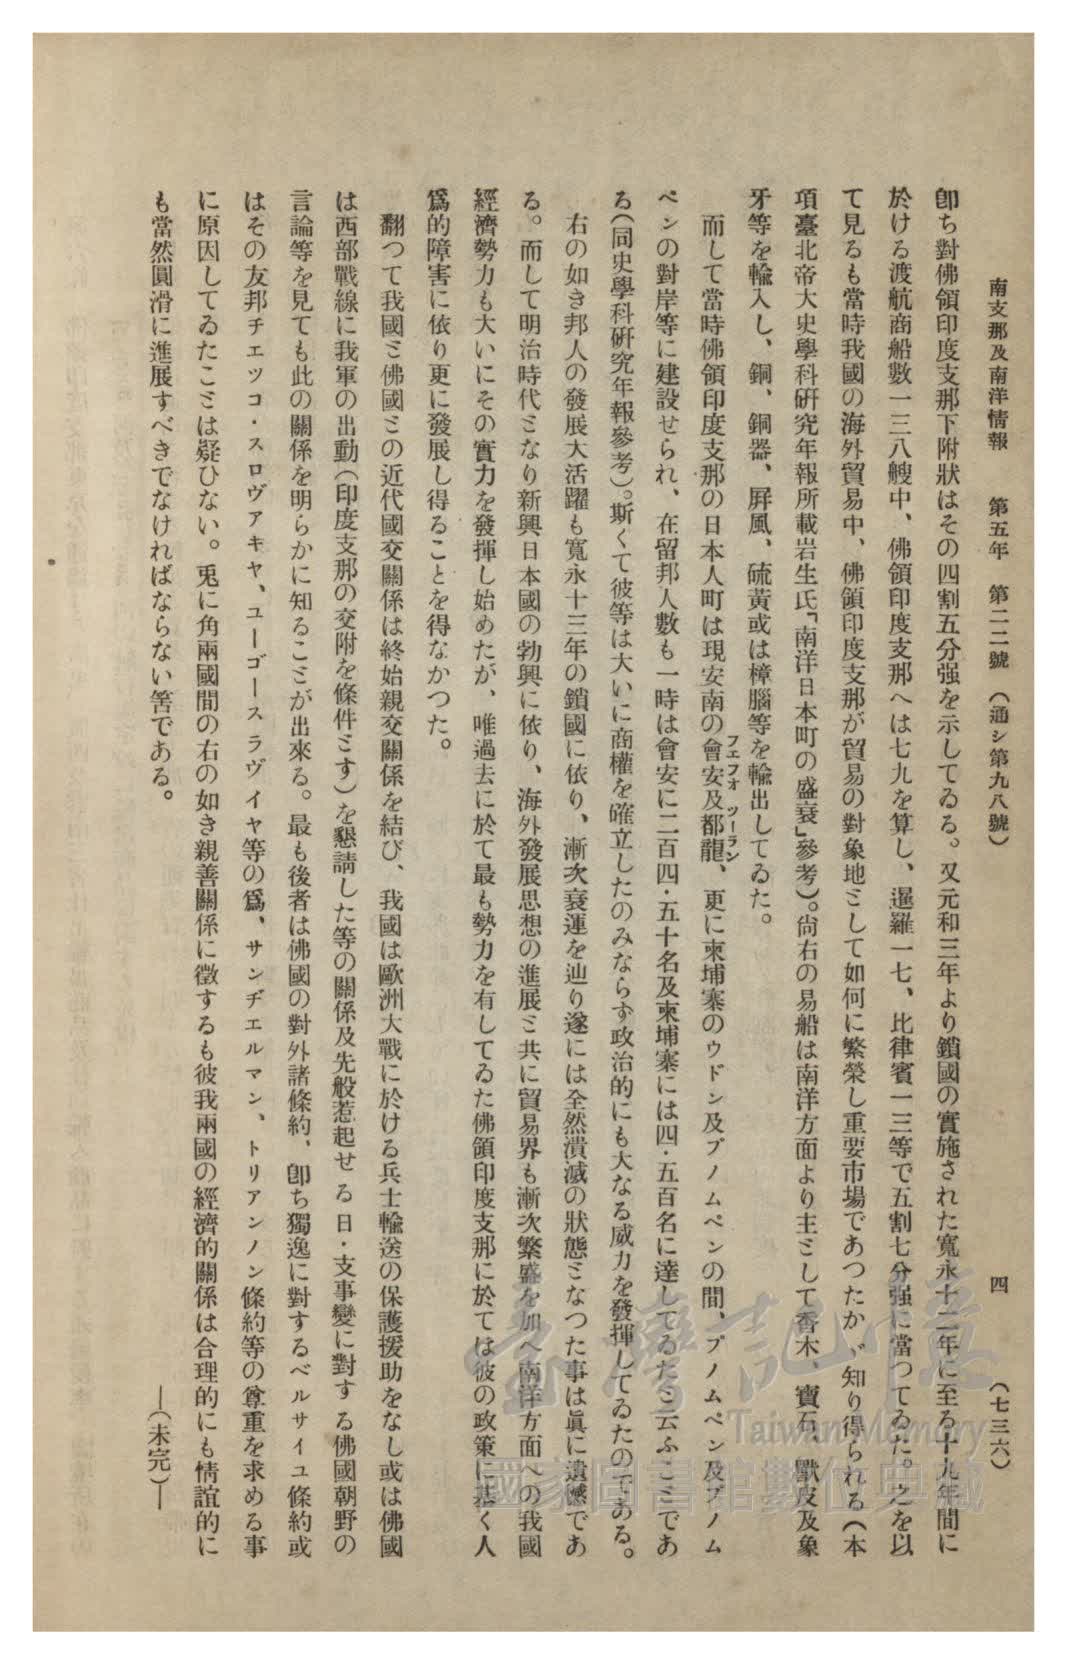 南支那及南洋情報　第五年　第二二號（通シ第九八號）　四　（七三六）
卽ち對佛領印度支那下附狀はその四割五分强を示してゐる。又元和三年より鎖國の實施された寬永十二年に至る十九年間に
於ける渡航商船數一三八艘中、佛領印度支那へは七九を算し、暹羅一七、比律賓一三等で五割七分强に當つてゐた。之を以
て見るも當時我國の海外貿易中、佛領印度支那が貿易の對象地として如何に繁榮し重要市場であつたかゞ知り得られる（本
項臺北帝大史學科硏究年報所載岩生氏「南洋日本町の盛衰」參考）。尙右の易船は南洋方面より主として香木、寶石、獸皮及象
牙等を輸入し、銅、銅器、屛風、硫黃或は樟腦等を輸出してゐた。
而して當時佛領印度支那の日本人町は現安南の會安及都龍、更に柬埔寨のウドン及プノムペンの間、プノムペン及プノム
フエフオ　ツーラン
ペンの對岸等に建設せられ、在留邦人數も一時は會安に二百四・五十名及柬埔寨には四・五百名に達してゐたと云ふことであ
る（同史學科硏究年報參考）。斯くて彼等は大いに商權を確立したのみならず政治的にも大なる威力を發揮してゐたのである。
右の如き邦人の發展大活躍も寬永十三年の鎖國に依り、漸次衰運を辿り遂には全然潰滅の狀態となつた事は眞に遺憾であ
る。而して明治時代となり新興日本國の勃興に依り、海外發展思想の進展と共に貿易界も漸次繁盛を加へ南洋方面への我國
經濟勢力も大いにその實力を發揮し始めたが、唯過去に於て最も勢力を有してゐた佛領印度支那に於ては彼の政策に基く人
爲的障害に依り更に發展し得ることを得なかつた。
翻つて我國と佛國との近代國交關係は終始親交關係を結び、我國は歐洲大戰に於ける兵士輸送の保護援助をなし或は佛國
は西部戰線に我軍の出動（印度支那の交附を條件とす）を懇請した等の關係及先般惹起せる日・支事變に對する佛國朝野の
言論等を見ても此の關係を明らかに知ることが出來る。最も後者は佛國の對外諸條約、卽ち獨逸に對するベルサイユ條約或
はその友邦チエツコ・スロヴアキヤ、ユーゴースラヴイヤ等の爲、サンヂエルマン、トリアンノン條約等の尊重を求める事
に原因してゐたことは疑ひない。兎に角兩國間の右の如き親善關係に徵するも彼我兩國の經濟的關係は合理的にも情誼的に
も當然圓滑に進展すべきでなければならない筈である。
―（未完）―
臺灣記憶
Taiwan Memory
國家圖書館數位典藏